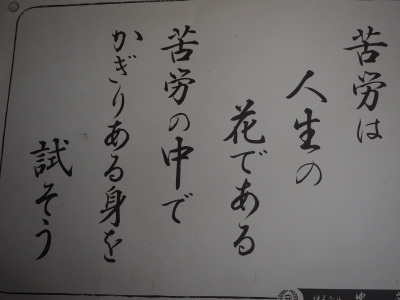 苦労は
人生の
花である
苦労の中で
かぎりある身を
試そう